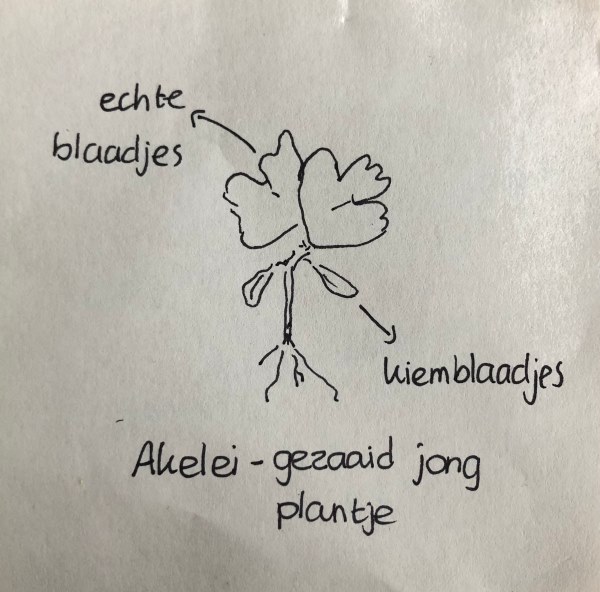 echte
blaadjes
kiemblaadjes
Akelei - gezaaid jong
plantje